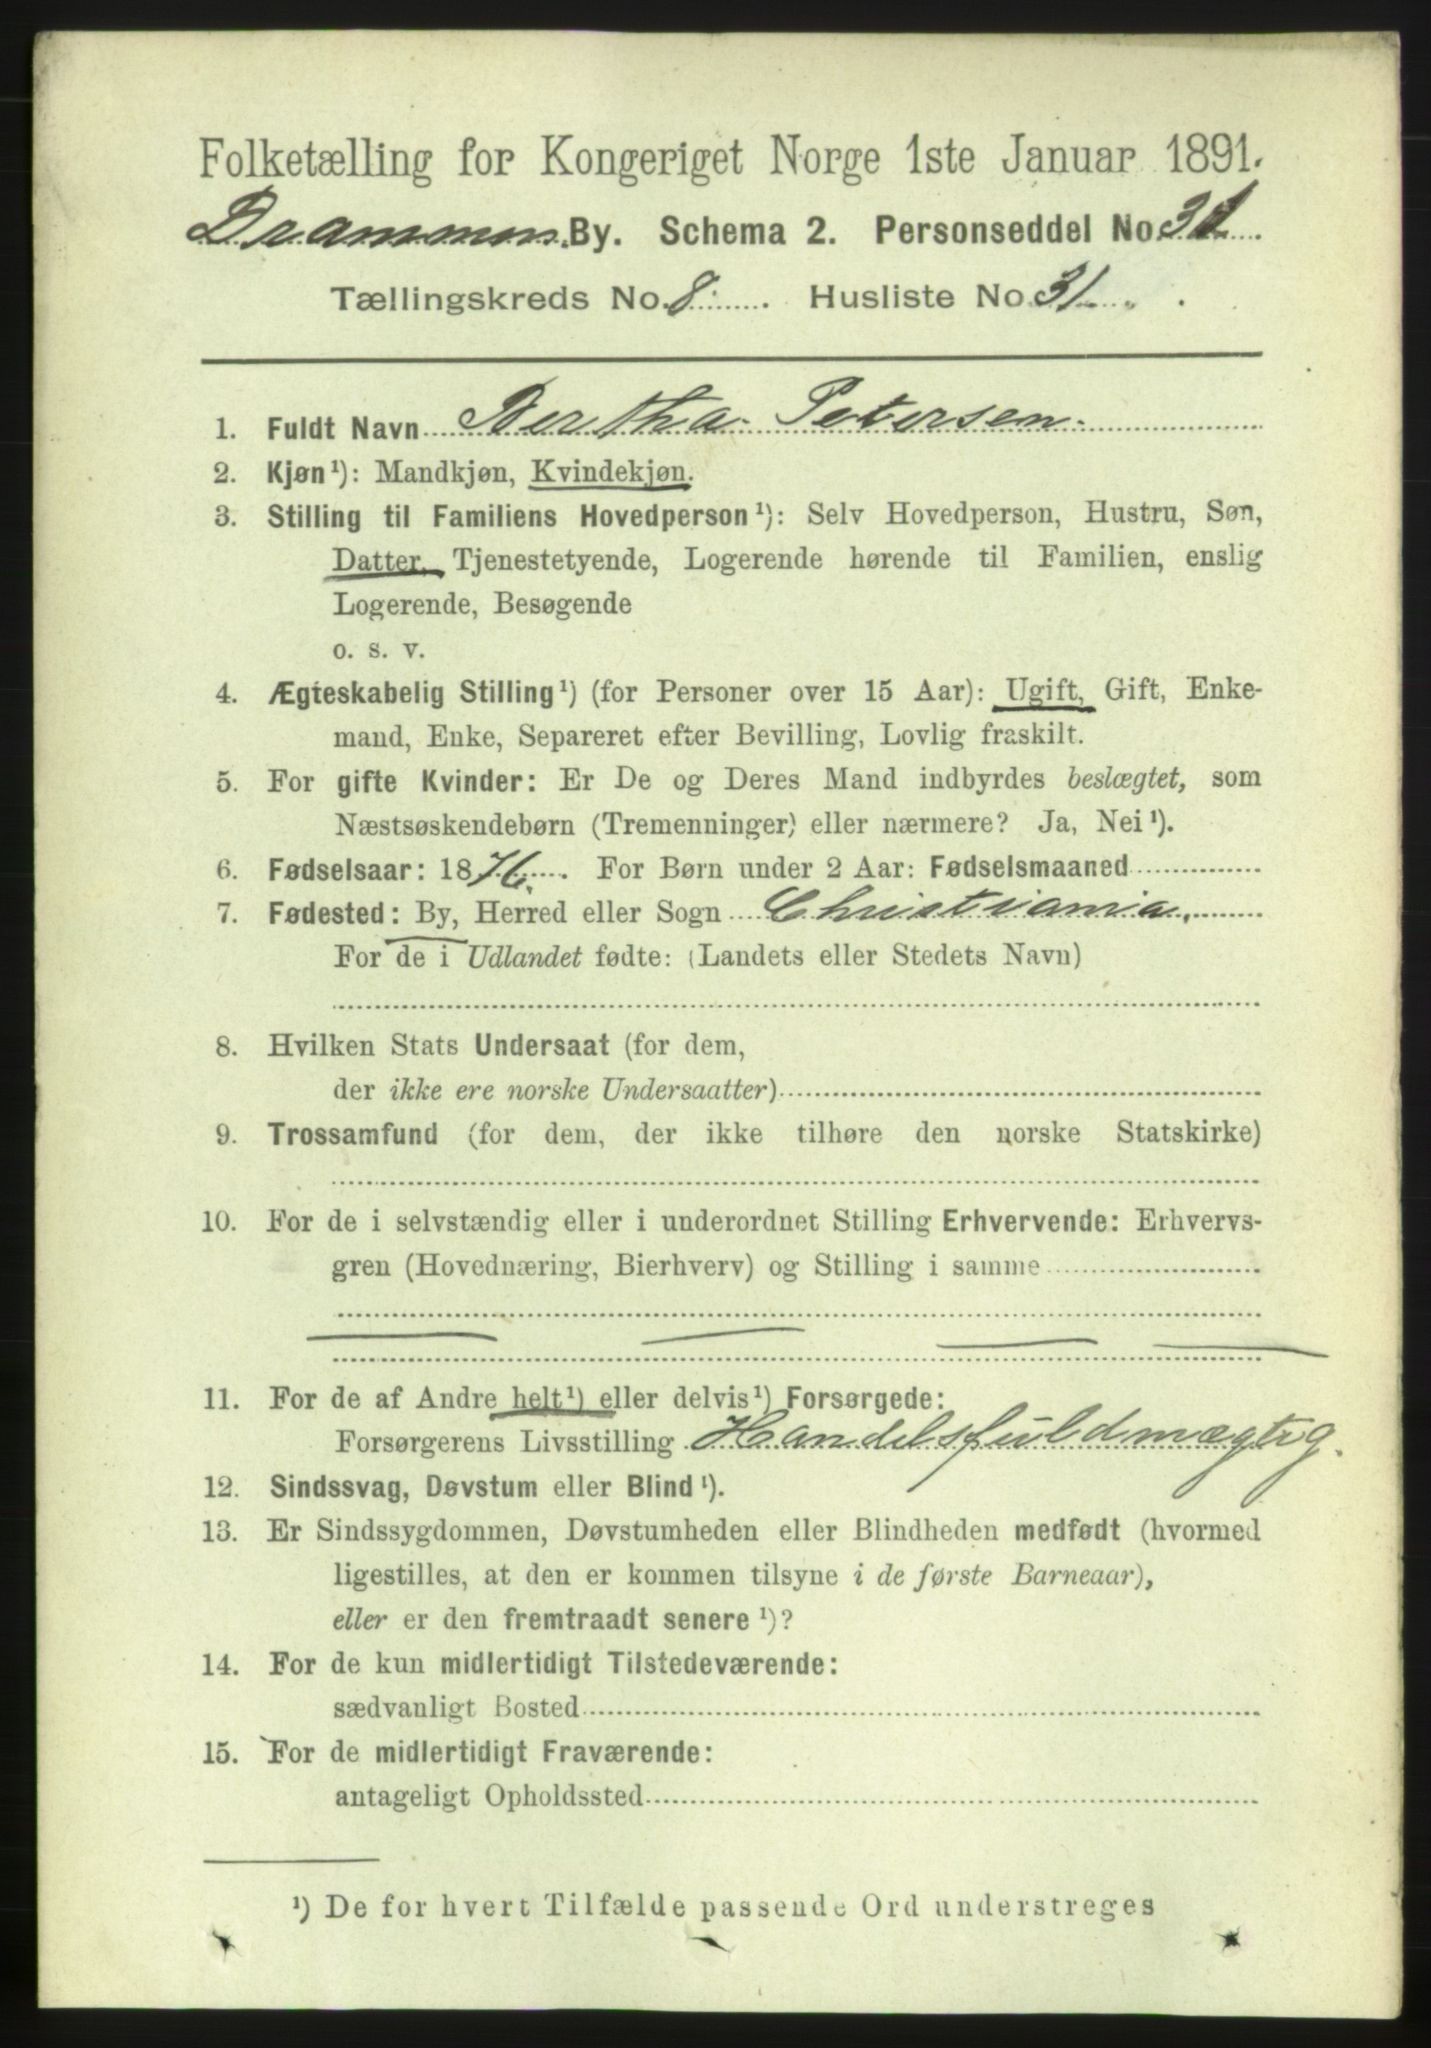 Folketælling for Kongeriget Norge 1ste Januar 1891.
Drammen By. Schema 2. Personseddel No.
Tællingskreds No. 8. Husliste No. 31.
1. Fuldt Navn Bertha Petersen.
2. Kjøn¹): Mandkjøn, Kvindekjøn.
3. Stilling til Familiens Hovedperson¹): Selv Hovedperson, Hustru, Søn,
Datter, Tjenestetyende, Logerende hørende til Familien, enslig
Logerende, Besøgende
o. s. v.
4. Ægteskabelig Stilling¹) (for Personer over 15 Aar): Ugift, Gift, Enke-
mand, Enke, Separeret efter Bevilling, Lovlig fraskilt.
5. For gifte Kvinder: Er De og Deres Mand indbyrdes beslægtet, som
Næstsøskendebørn (Tremenninger) eller nærmere? Ja, Nei¹).
6. Fødselsaar: 1876. For Børn under 2 Aar: Fødselsmaaned
7. Fødested: By, Herred eller Sogn Christiania,
For de i Udlandet fødte: (Landets eller Stedets Navn)
8. Hvilken Stats Undersaat (for dem,
der ikke ere norske Undersaatter)
9. Trossamfund (for dem, der ikke tilhøre den norske Statskirke)
10. For de i selvstændig eller i underordnet Stilling Erhvervende: Erhvervs-
gren (Hovednæring, Bierhverv) og Stilling i samme
11. For de af Andre helt¹) eller delvis¹) Forsørgede:
Forsørgerens Livsstilling Handelsfuldmægtig.
12. Sindssvag, Døvstum eller Blind¹).
13. Er Sindssygdommen, Døvstumheden eller Blindheden medfødt (hvormed
ligestilles, at den er kommen tilsyne i de første Barneaar),
eller er den fremtraadt senere¹)?
14. For de kun midlertidigt Tilstedeværende:
sædvanligt Bosted
15. For de midlertidigt Fraværende:
antageligt Opholdssted
¹) De for hvert Tilfælde passende Ord understreges